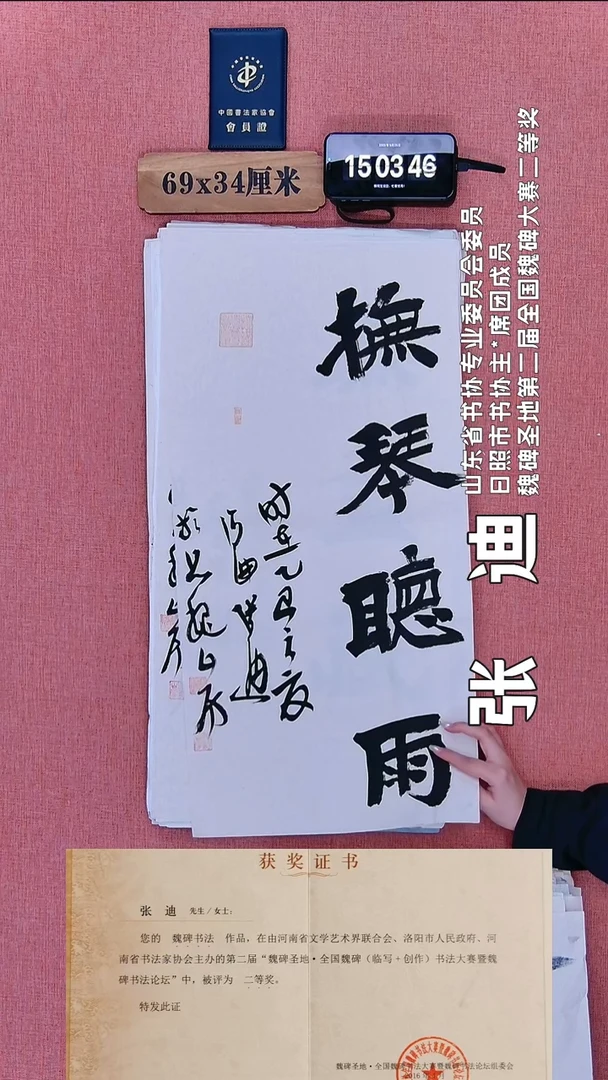 中國書法家協會
會員證
69x34厘米
15 03 46
撫琴聽雨
时在乙巳之夏
山东省书协专业委员会委员
日照市书协主*席团成员
魏碑圣地第二届全国魏碑大赛二等奖
张 迪
获奖证书
张 迪 先生/女士:
您的 魏碑书法 作品,在由河南省文学艺术界联合会、洛阳市人民政府、河
南省书法家协会主办的第二届“魏碑圣地·全国魏碑(临写+创作)书法大赛暨魏
碑书法论坛”中,被评为 二等奖。
特发此证
魏碑圣地·全国魏碑书法大赛暨魏碑书法论坛组委会